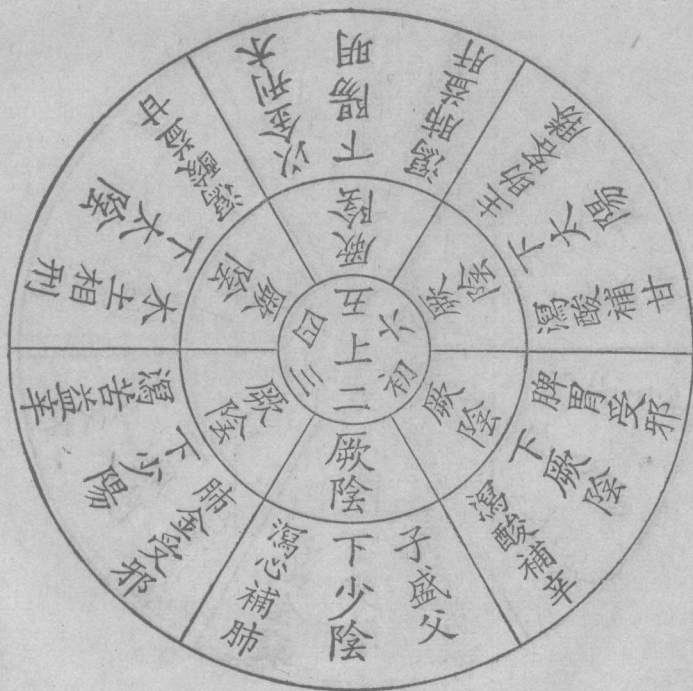 上
初
二
三
四
五
六
厥陰
厥陰
厥陰
厥陰
厥陰
厥陰
脾胃受邪
下厥陰
瀉酸補辛
子盛父
下少陰
瀉心補肺
肺金受邪
下少陽
瀉苦益辛
木土相刑
下太陰
瀉酸甘
以金刑木
下陽明
瀉肺資肝
主客勝
下太陽
瀉酸補甘